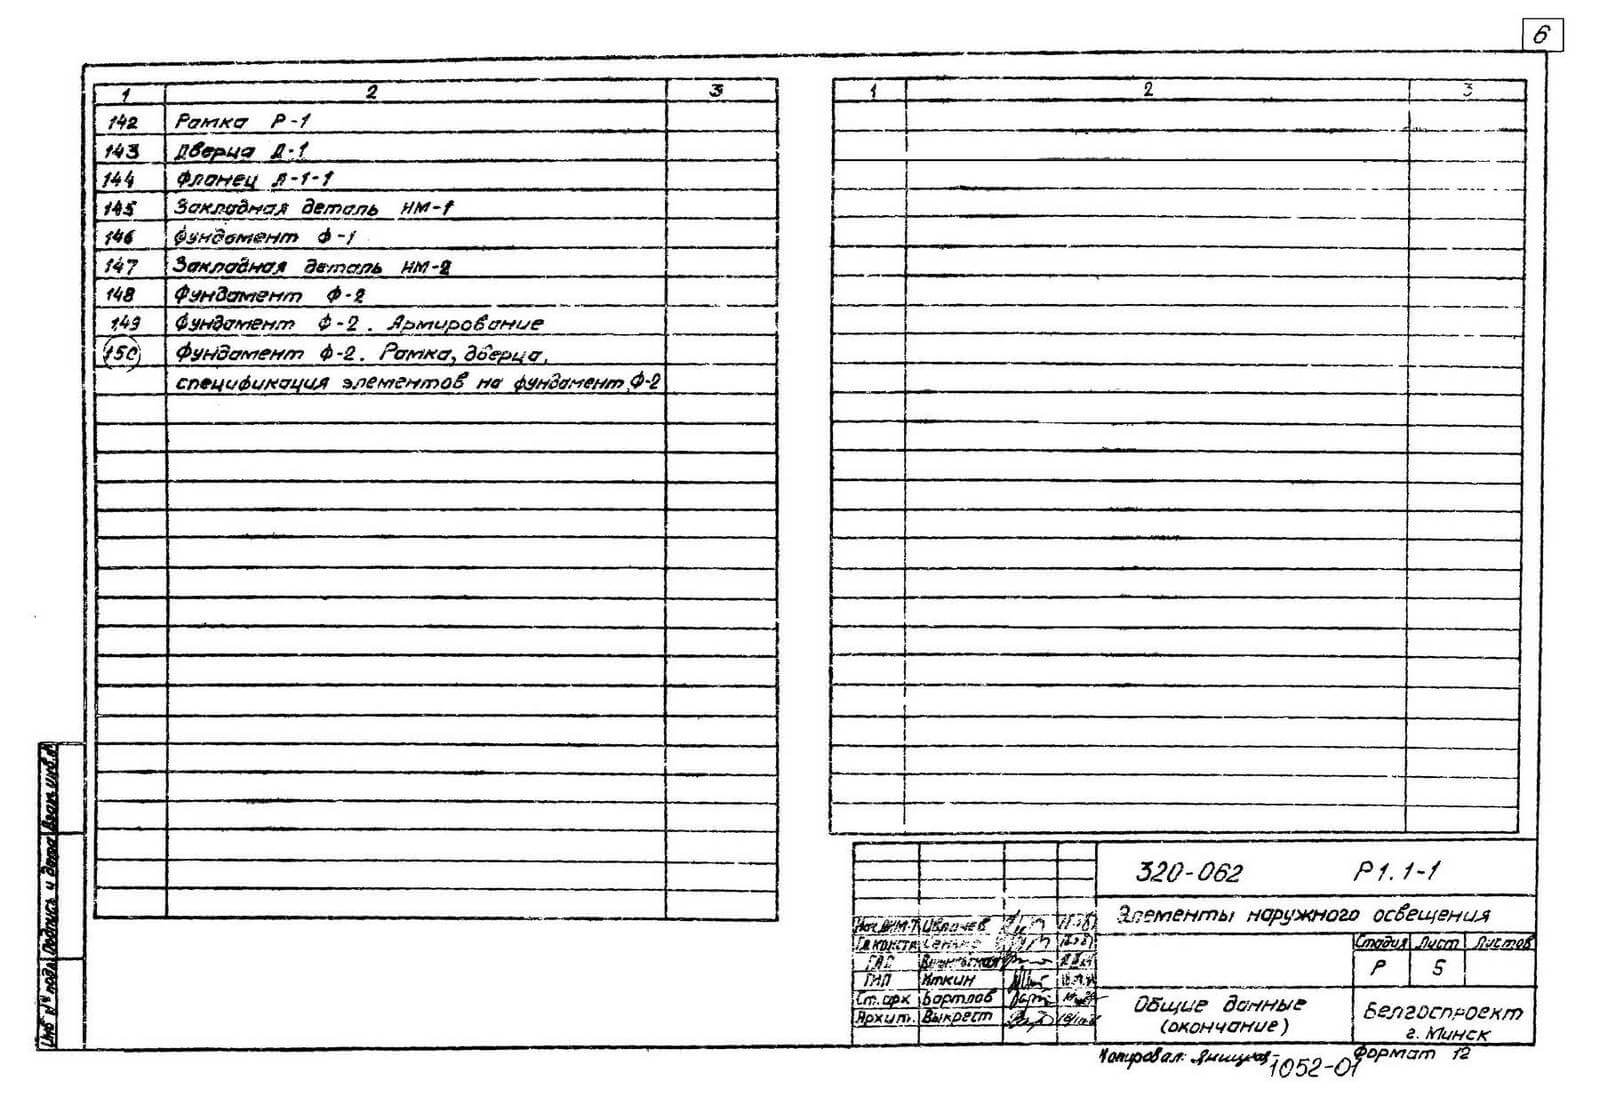 6
1 2 3
142 Рамка Р-1
143 Дверца Д-1
144 Фланец Д-1-1
145 Закладная деталь НМ-1
146 Фундамент Ф-1
147 Закладная деталь НМ-2
148 Фундамент Ф-2
149 Фундамент Ф-2. Армирование
150 Фундамент Ф-2. Рамка, дверца,
спецификация элементов на фундамент Ф-2
1 2 3
320-062 Р1.1-1
Элементы наружного освещения
Стадия Лист Листов
Р 5
Общие данные
(окончание)
Белгоспроект
г. Минск
Гл.констр.
ГАП
ГИП Иткин
Ст. арх Бортлов
Архит. Выкрест
Инв № подл Подпись и дата Взам инв.№
Копировал:
1052-01
Формат 12